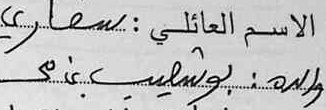 الاسم العائلي : سعاري
والده : بوشعيب بن